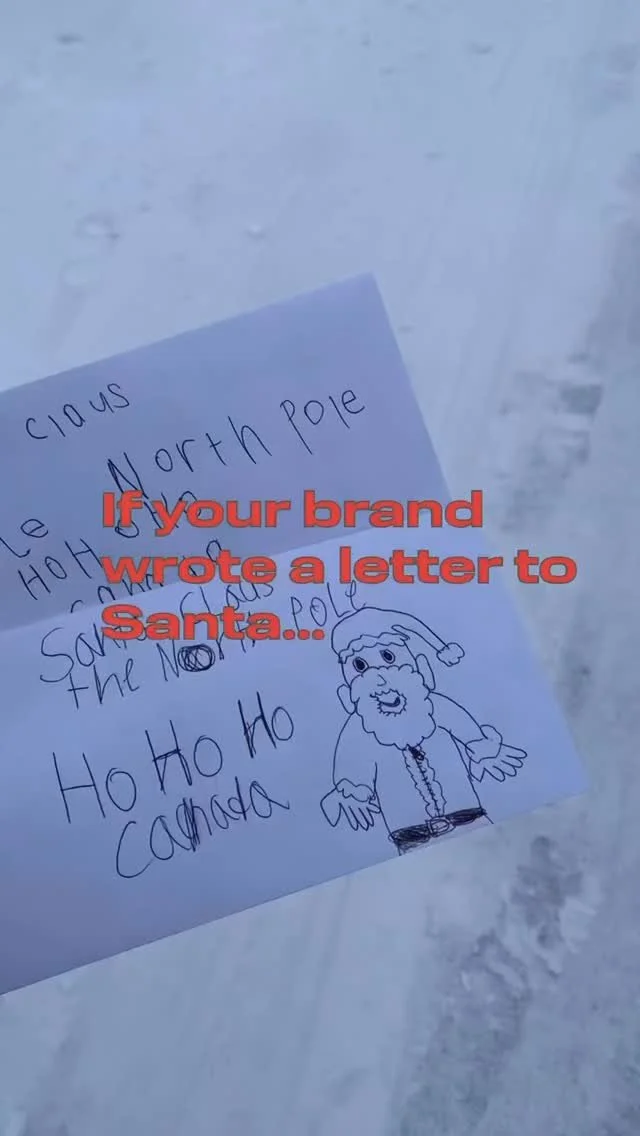 claus
North Pole
Le
HO H
If your brand
wrote a letter to
Santa...
Claus
the North POLE
HO HO HO
Canada